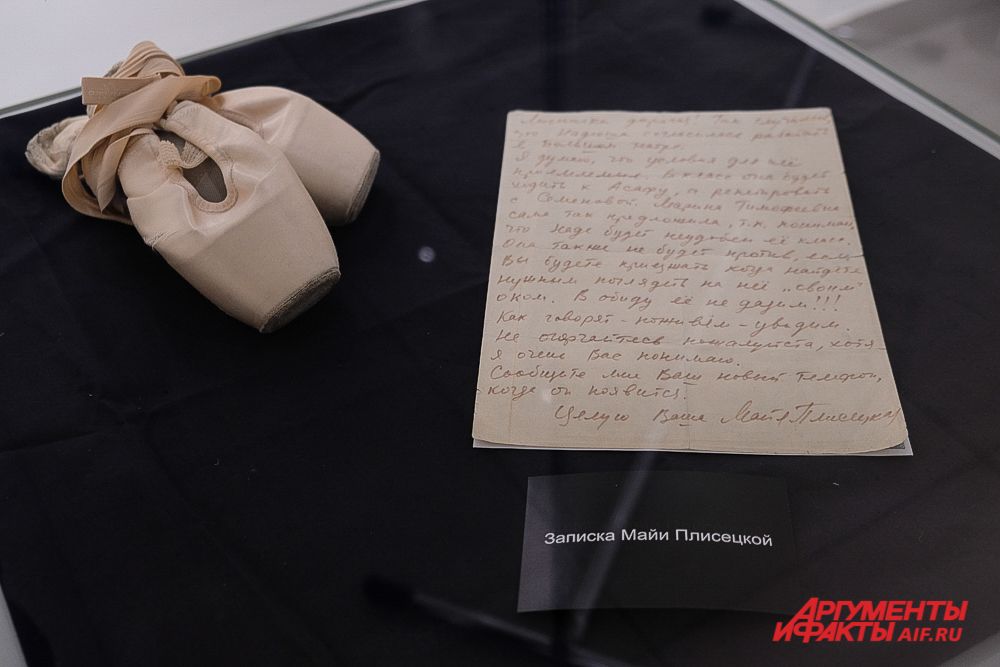 Людмилка дорогая! Так случилось,
что Надюша согласилась работать
в Большом театре.
Я думаю, что условия для неё
приемлемые. В класс она будет
ходить к Асафу, а репетировать
с Семеновой. Марина Тимофеевна
сама так предложила, т.к. понимает,
что Наде будет неудобен её класс.
Она также не будет против, если
Вы будете приезжать когда найдёте
нужным поглядеть на неё „своим"
оком. В обиду её не дадим!!!
Как говорят - поживём - увидим.
Не огорчайтесь пожалуйста, хотя
я очень Вас понимаю.
Сообщите мне Ваш новый телефон,
когда он появится.
Целую Ваша Майя Плисецкая
Записка Майи Плисецкой
АРГУМЕНТЫ
И ФАКТЫ AIF.RU